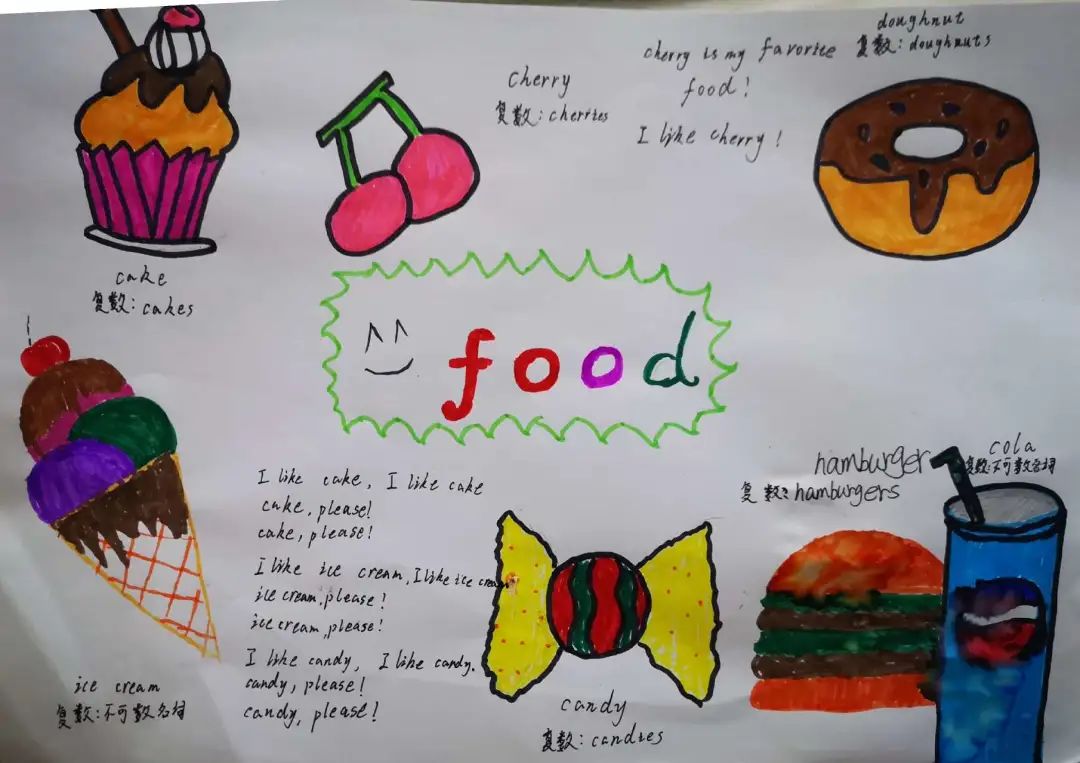 doughnut
复数: doughnuts
cherry is my favorite
food!
I like cherry!
cherry
复数: cherries
cake
复数: cakes
food
hamburger
复数: hamburgers
cola
复数:不可数名词
I like cake, I like cake
cake, please!
cake, please!
I like ice cream, I like ice cream
ice cream, please!
ice cream, please!
I like candy, I like candy.
candy, please!
candy, please!
ice cream
复数:不可数名词
candy
复数: candies